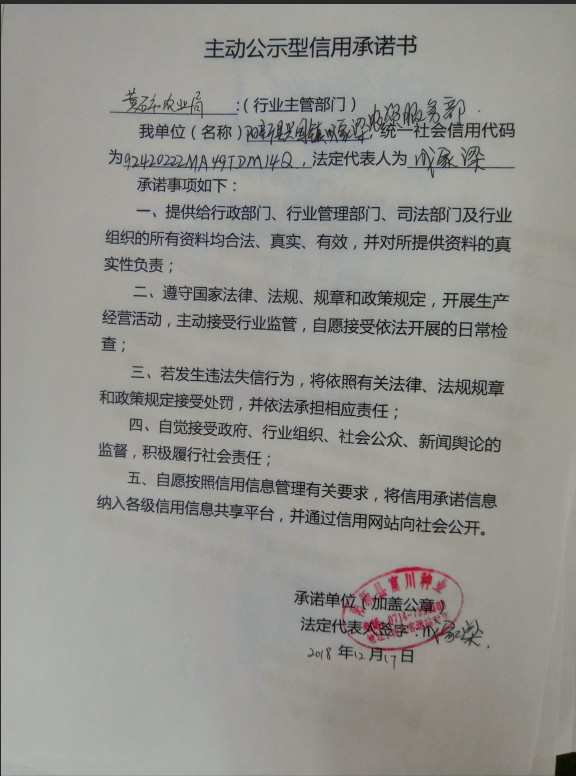 主动公示型信用承诺书
黄石市农业局:(行业主管部门)
我单位(名称)阳新县兴国镇成家梁农资服务部,统一社会信用代码
为92420222MA49TDM14Q,法定代表人为 成家梁
承诺事项如下:
一、提供给行政部门、行业管理部门、司法部门及行业
组织的所有资料均合法、真实、有效,并对所提供资料的真
实性负责;
二、遵守国家法律、法规、规章和政策规定,开展生产
经营活动,主动接受行业监管,自愿接受依法开展的日常检
查;
三、若发生违法失信行为,将依照有关法律、法规规章
和政策规定接受处罚,并依法承担相应责任;
四、自觉接受政府、行业组织、社会公众、新闻舆论的
监督,积极履行社会责任;
五、自愿按照信用信息管理有关要求,将信用承诺信息
纳入各级信用信息共享平台,并通过信用网站向社会公开。
阳新县富川种业
承诺单位(加盖公章)
法定代表人签字:成家梁
2018年12月17日